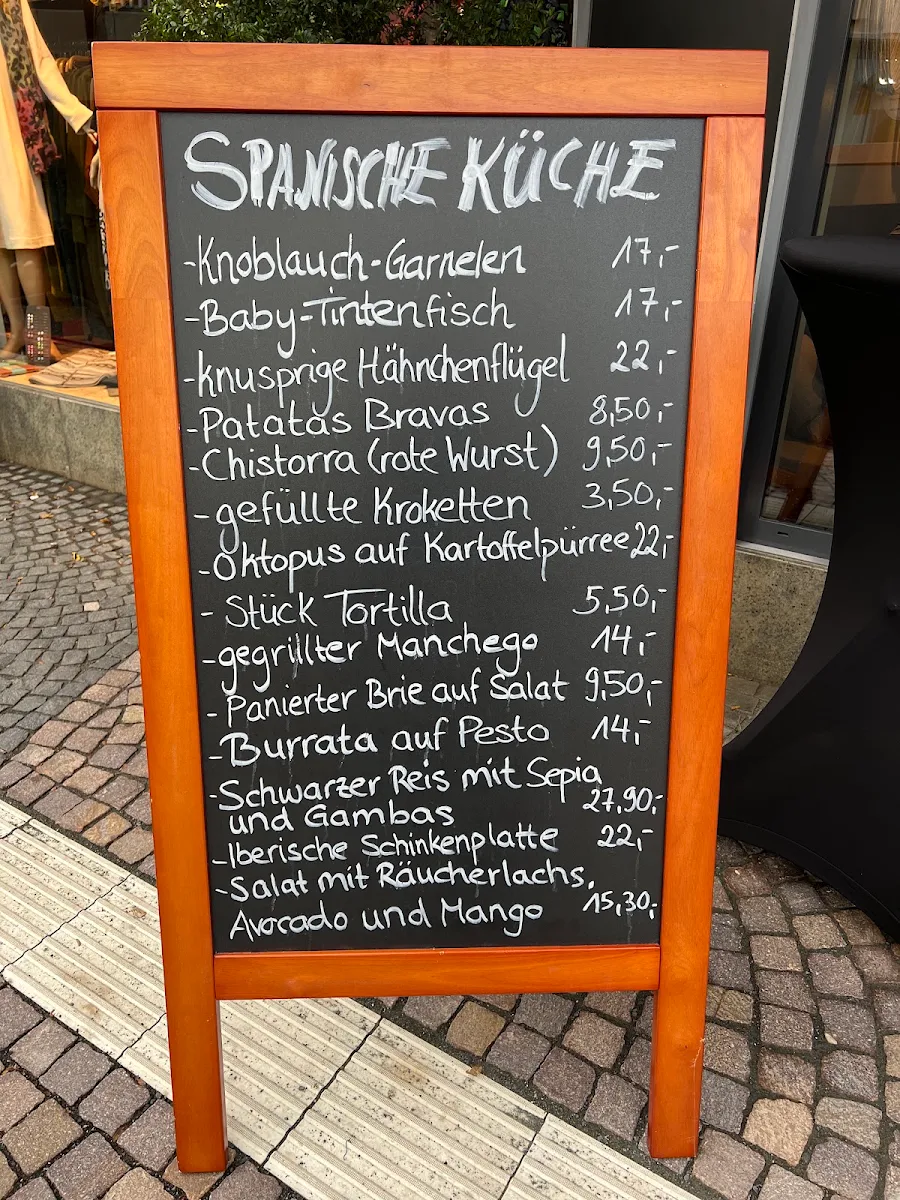 SPANISCHE KÜCHE
-Knoblauch-Garnelen 17,-
-Baby-Tintenfisch 17,-
-knusprige Hähnchenflügel 22,-
-Patatas Bravas 8,50,-
-Chistorra (rote Wurst) 9,50,-
-gefüllte Kroketten 3,50,-
-Oktopus auf Kartoffelpürree 22,-
- Stück Tortilla 5,50,-
-gegrillter Manchego 14,-
-Panierter Brie auf Salat 9,50,-
-Burrata auf Pesto 14,-
-Schwarzer Reis mit Sepia
und Gambas 27,90,-
-Iberische Schinkenplatte 22,-
-Salat mit Räucherlachs,
Avocado und Mango 15,30,-